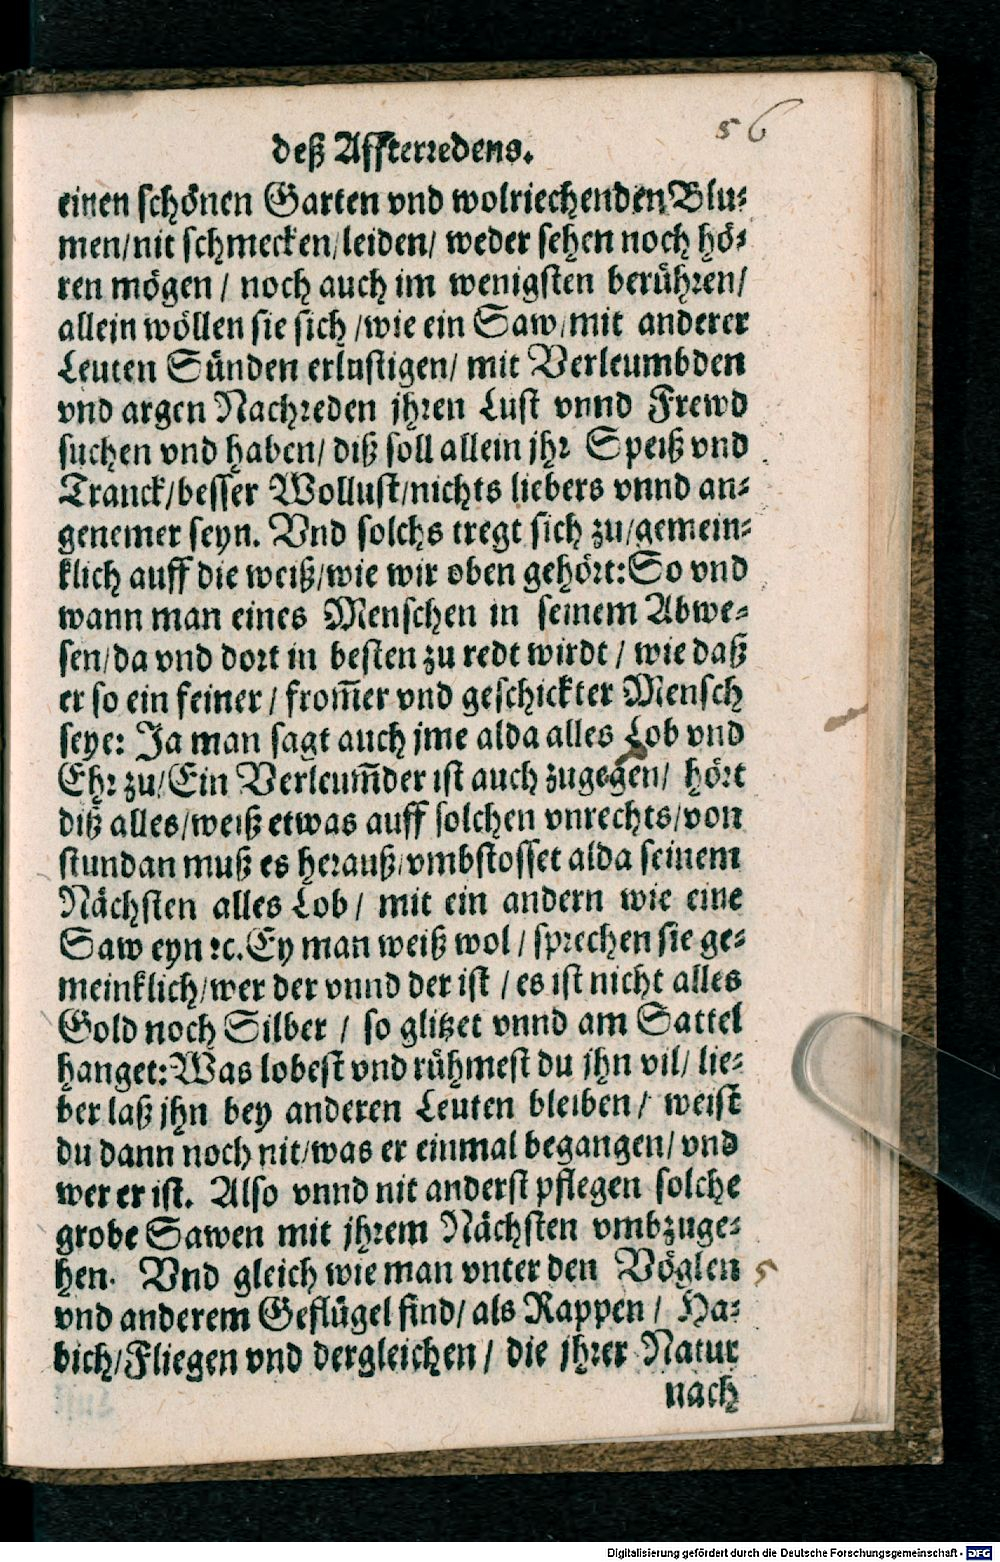 56
deß Affterredens.
einen schönen Garten vnd wolriechenden Blu⸗
men/nit schmecken/leiden/ weder sehen noch hö⸗
ren mögen / noch auch im wenigsten berühren/
allein wöllen sie sich /wie ein Saw/mit anderer
Leuten Sünden erlustigen/ mit Verleumbden
vnd argen Nachreden jhren Lust vnnd Frewd
suchen vnd haben/ diß soll allein jhr Speiß vnd
Tranck/besser Wollust/nichts liebers vnnd an⸗
genemer seyn. Vnd solchs tregt sich zu/gemein⸗
klich auff die weiß/wie wir oben gehört:So vnd
wann man eines Menschen in seinem Abwe⸗
sen/da vnd dort in besten zu redt wirdt / wie daß
er so ein feiner / from̃er vnd geschickter Mensch
seye: Ja man sagt auch jme alda alles Lob vnd
Ehr zu/Ein Verleum̃der ist auch zugegen/ hört
diß alles/weiß etwas auff solchen vnrechts/von
stundan muß es herauß/vmbstosset alda seinem
Nächsten alles Lob/ mit ein andern wie eine
Saw eyn ꝛc.Ey man weiß wol / sprechen sie ge⸗
meinklich/wer der vnnd der ist / es ist nicht alles
Gold noch Silber / so glitzet vnnd am Sattel
hanget:Was lobest vnd rühmest du jhn vil/ lie⸗
ber laß jhn bey anderen Leuten bleiben/ weist
du dann noch nit/was er einmal begangen/ vnd
wer er ist. Also vnnd nit anderst pflegen solche
grobe Sawen mit jhrem Nächsten vmbzuge⸗
hen. Vnd gleich wie man vnter den Vöglen
vnd anderem Geflügel find/ als Rappen / Ha⸗
bich/Fliegen vnd dergleichen / die jhrer Natur
nach
Digitalisierung gefördert durch die Deutsche Forschungsgemeinschaft - DFG